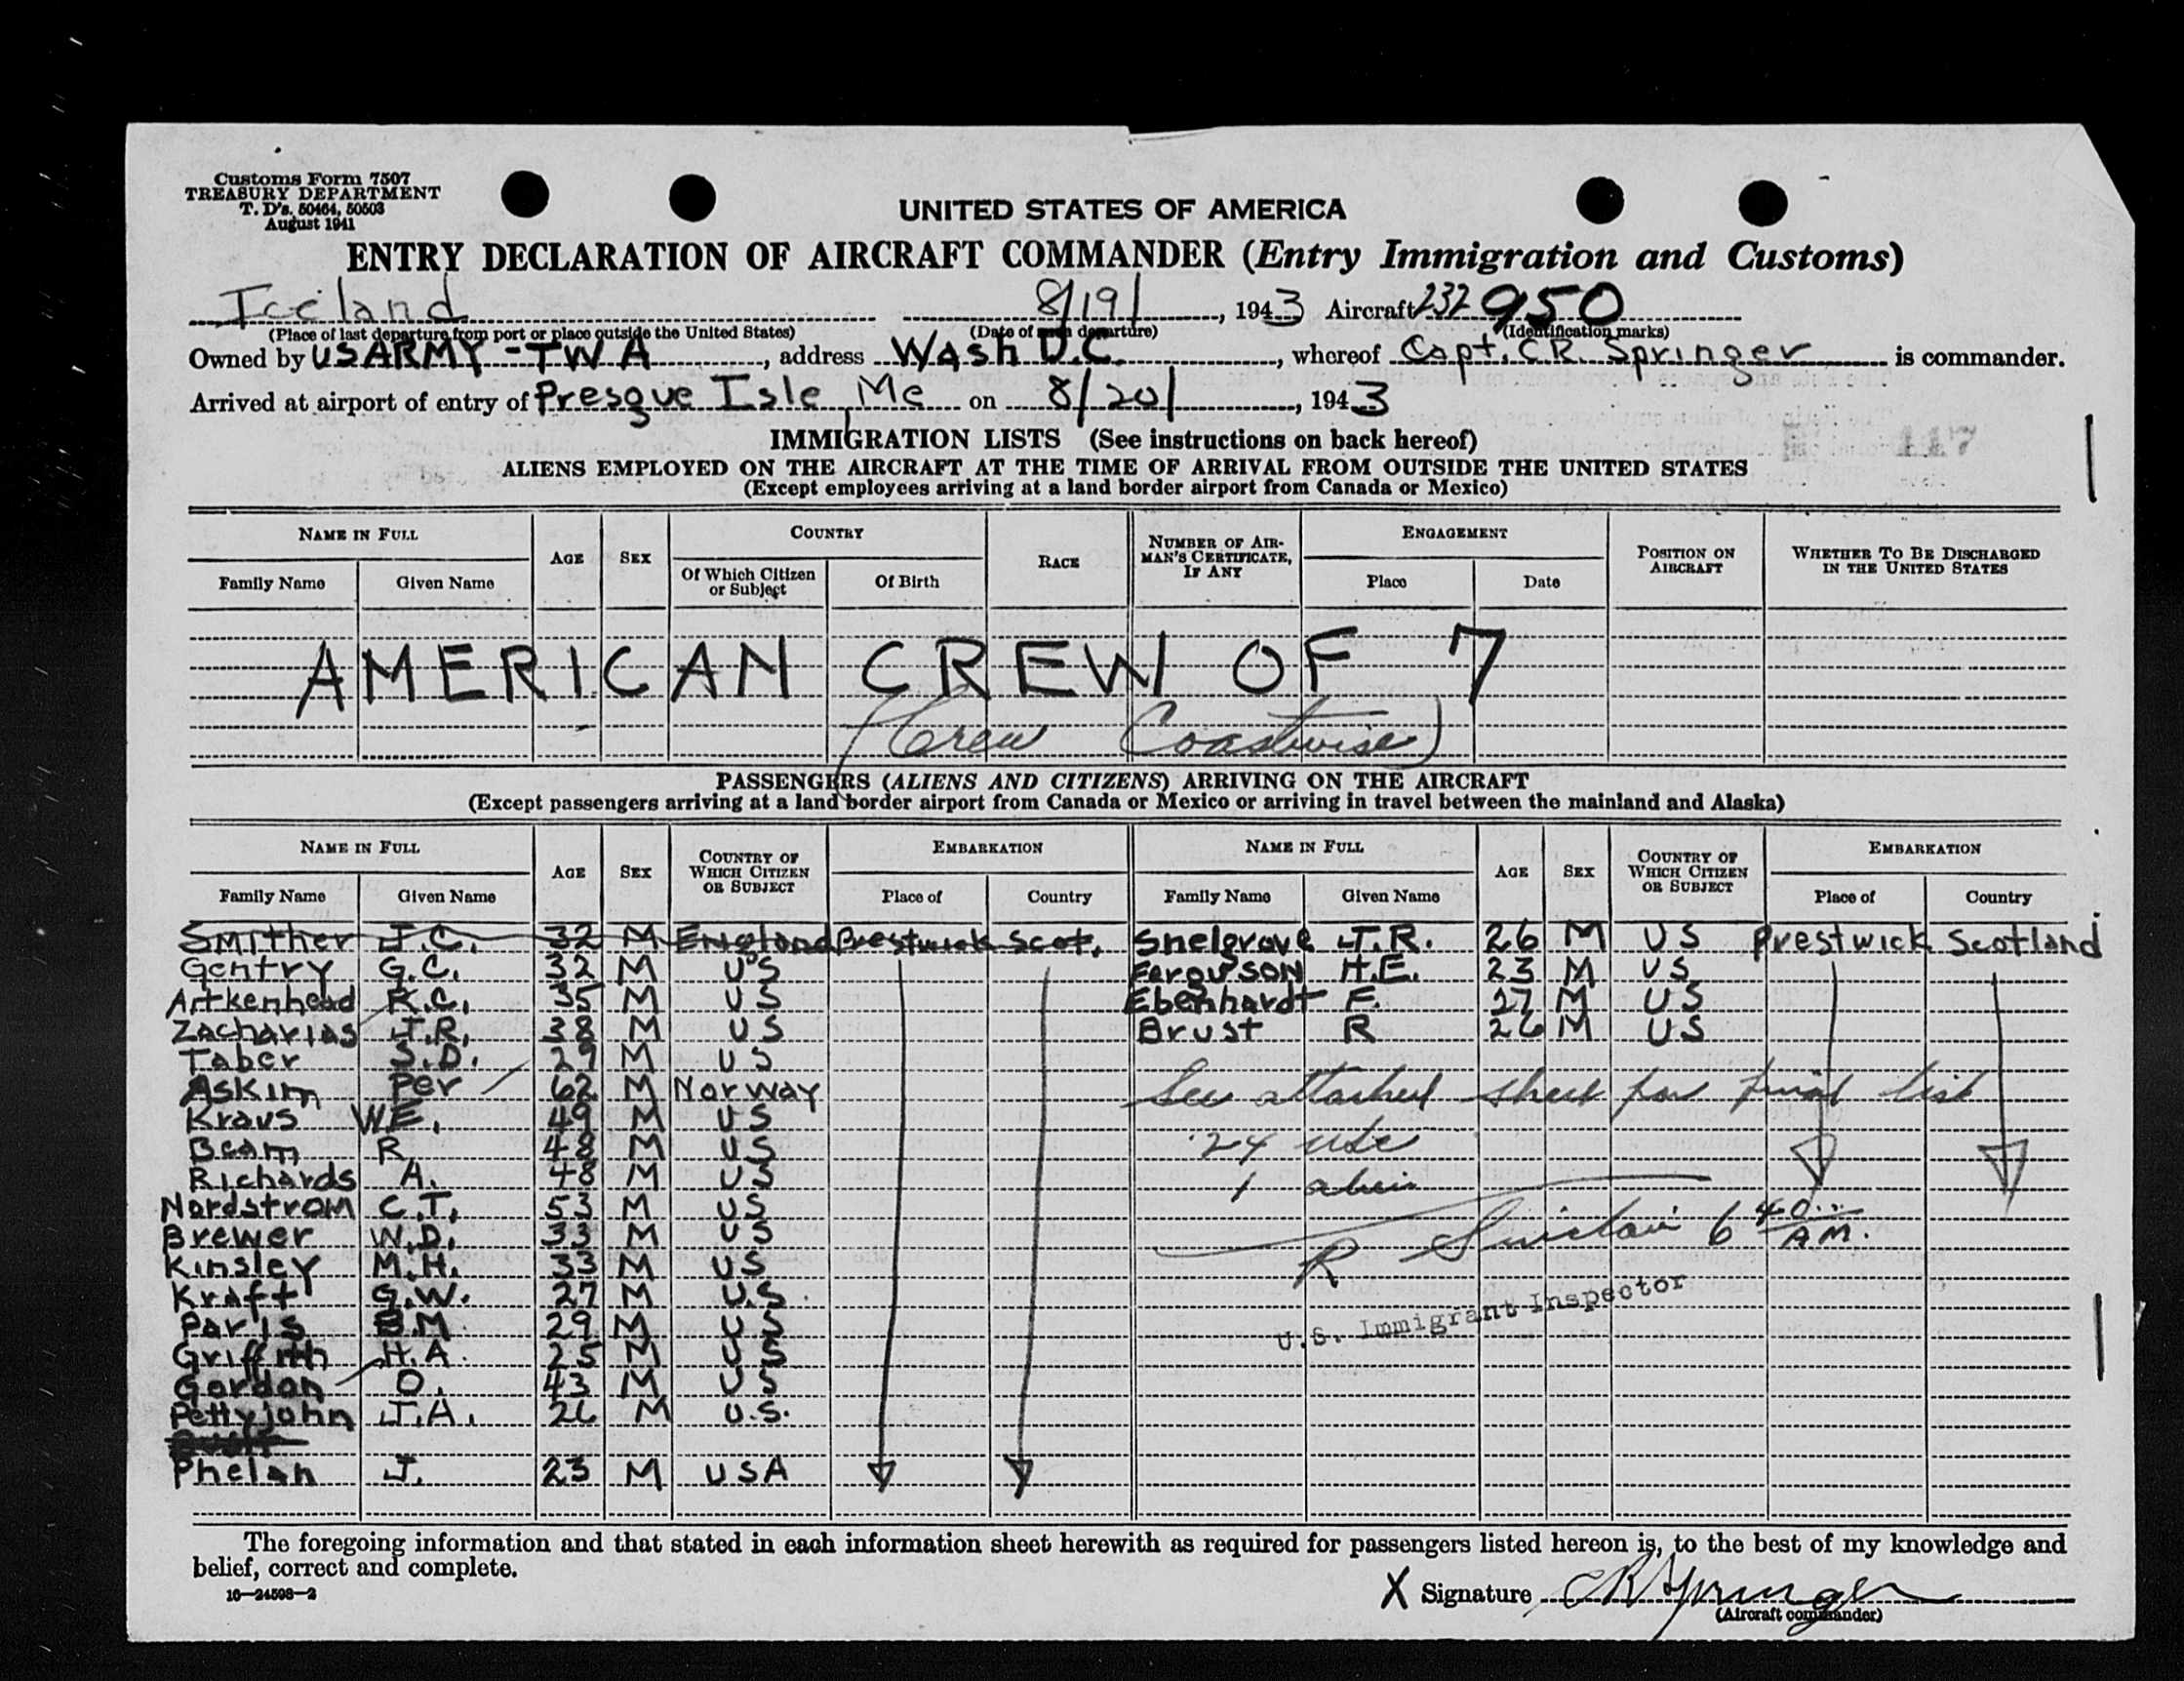 Customs Form 7507
TREASURY DEPARTMENT
T. D's. 50464, 50503
August 1941
UNITED STATES OF AMERICA
ENTRY DECLARATION OF AIRCRAFT COMMANDER (Entry Immigration and Customs)
Iceland 8/19/, 1943 Aircraft 232950
(Place of last departure from port or place outside the United States) (Date of such departure) (Identification marks)
Owned by US ARMY - TWA, address Wash D.C., whereof Capt. C.R. Springer is commander.
Arrived at airport of entry of Presque Isle, Me on 8/20/, 1943
IMMIGRATION LISTS (See instructions on back hereof)
117
ALIENS EMPLOYED ON THE AIRCRAFT AT THE TIME OF ARRIVAL FROM OUTSIDE THE UNITED STATES
(Except employees arriving at a land border airport from Canada or Mexico)
NAME IN FULL AGE SEX COUNTRY RACE NUMBER OF AIRMAN'S CERTIFICATE, IF ANY ENGAGEMENT POSITION ON AIRCRAFT WHETHER TO BE DISCHARGED IN THE UNITED STATES
Family Name Given Name Of Which Citizen or Subject Of Birth Place Date
AMERICAN CREW OF 7
(Crew Coastwise)
PASSENGERS (ALIENS AND CITIZENS) ARRIVING ON THE AIRCRAFT
(Except passengers arriving at a land border airport from Canada or Mexico or arriving in travel between the mainland and Alaska)
NAME IN FULL AGE SEX COUNTRY OF WHICH CITIZEN OR SUBJECT EMBARKATION NAME IN FULL AGE SEX COUNTRY OF WHICH CITIZEN OR SUBJECT EMBARKATION
Family Name Given Name Place of Country Family Name Given Name Place of Country
Smither J.C. 32 M England Prestwick Scot. Snelgrove J.R. 26 M US Prestwick Scotland
Gentry G.C. 32 M US Ferguson H.E. 23 M US
Aitkenhead R.C. 35 M US Ebenhardt F. 27 M US
Zacharias J.R. 38 M US Brust R 26 M US
Taber S.D. 29 M US
Askim Per 62 M Norway See attached sheet for final list
Kraus W.E. 49 M US
Beam R. 48 M US 24 USC
Richards A. 48 M US 1 alien
Nordstrom C.T. 53 M US
Brewer W.D. 33 M US R Sinclair 6 40 AM.
Kinsley M.H. 33 M US
Kraft G.W. 27 M U.S.
Paris B.M. 29 M US U.S. Immigrant Inspector
Griffith H.A. 25 M US
Gordon O. 43 M US
Pettyjohn J.A. 26 M U.S.
Phelan J. 23 M USA
The foregoing information and that stated in each information sheet herewith as required for passengers listed hereon is, to the best of my knowledge and
belief, correct and complete.
16—24598-2
X Signature CR Springer
(Aircraft commander)